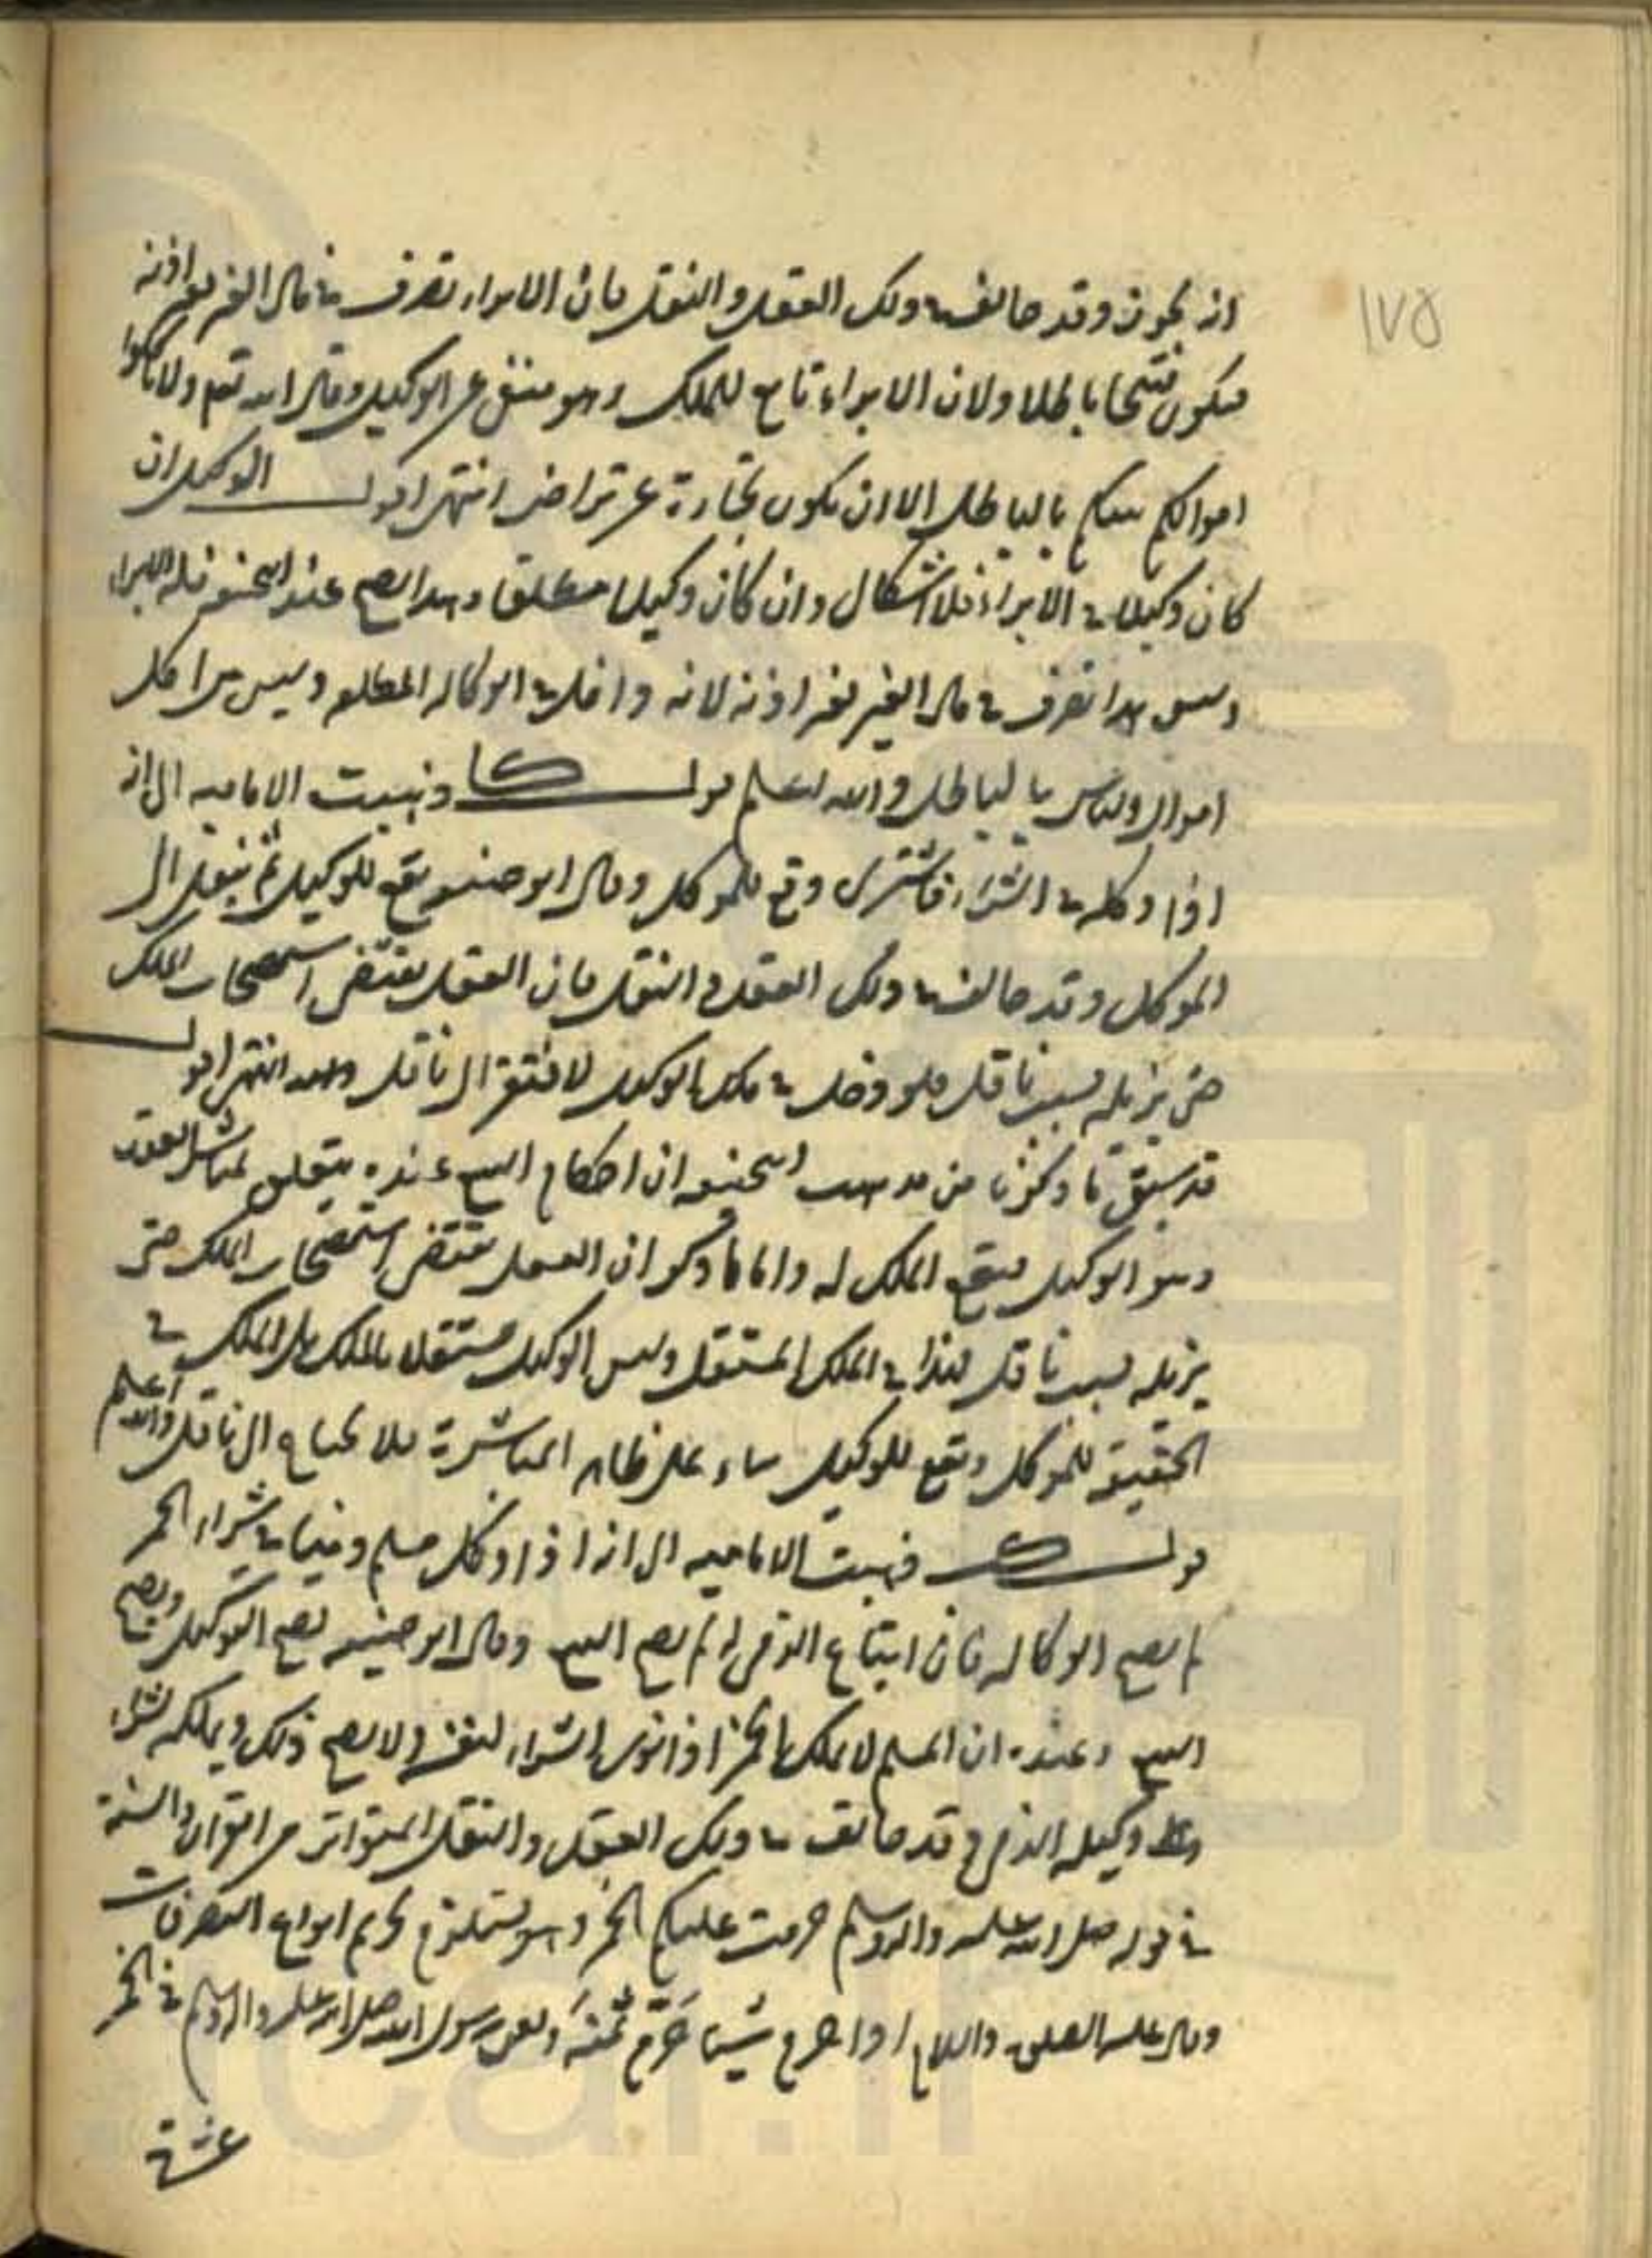 ١٧٥
انه يجوز وقد خالف في ذلك العقل والنقل فان الابراء تصرف في مال الغير بغير اذنه
فيكون قبيحا باطلا ولان الابراء تابع للملك وهو منتف عن الوكيل وقال الله تعم ولا تاكلوا
اموالكم بينكم بالباطل الا ان تكون تجارة عن تراض انتهى اقول الوكيل ان
كان وكيلا في الابراء فلا اشكال وان كان وكيلا مطلقا وهذا يصح عند ابيحنيفه فله الابراء
وليس هذا تصرف في مال الغير بغير اذنه لانه داخل في الوكاله المطلقه وليس من اكل
اموال الناس بالباطل والله اعلم قولـــه كا ذهبت الاماميه الى انه
اذا وكله في الشراء فاشترى وقع للموكل وقال ابو حنيفه يقع للوكيل ثم ينتقل الى
الموكل وقد خالف في ذلك العقل والنقل فان العقل يقتضى استصحاب الملك
حتى يزيله بسبب ناقل فلو دخل في ملك الوكيل لافتقر الى ناقل انتهى اقول
قد سبق ما ذكرنا من مذهب ابيحنيفه ان احكام البيع عنده يتعلق بمباشر العقد
وهو الوكيل فيقع الملك له واما ما ذكر ان العقل يقتضى استصحاب الملك حتى
يزيله بسبب ناقل فهذا في الملك المستقل وليس الوكيل مستقلا بالملك بل الملك في
الحقيقة للموكل ويقع للوكيل بناء على ظاهر المباشرة فلا يحتاج الى ناقل والله اعلم
قولـــه ذهبت الاماميه الى انه اذا وكل مسلم ذميا في شراء الخمر
لم يصح الوكاله فان ابتاع الذمى له لم يصح البيع وقال ابو حنيفه يصح التوكيل ويصح
البيع وعنده ان المسلم لا يملك الخمر اذا تولى الشراء لنفسه ولا يصح ذلك ويملكه بشراء
وكيله الذمى وقد خالف في ذلك العقل والنقل المتواتر من القران والسنة
في قوله صلى الله عليه واله وسلم حرمت عليكم الخمر وهو يستلزم تحريم انواع التصرفات
وقال عليه الصلوة والسلام اذا حرم شيئا حرم ثمنه ولعن رسول الله صلى الله عليه واله وسلم في الخمر
عشرة